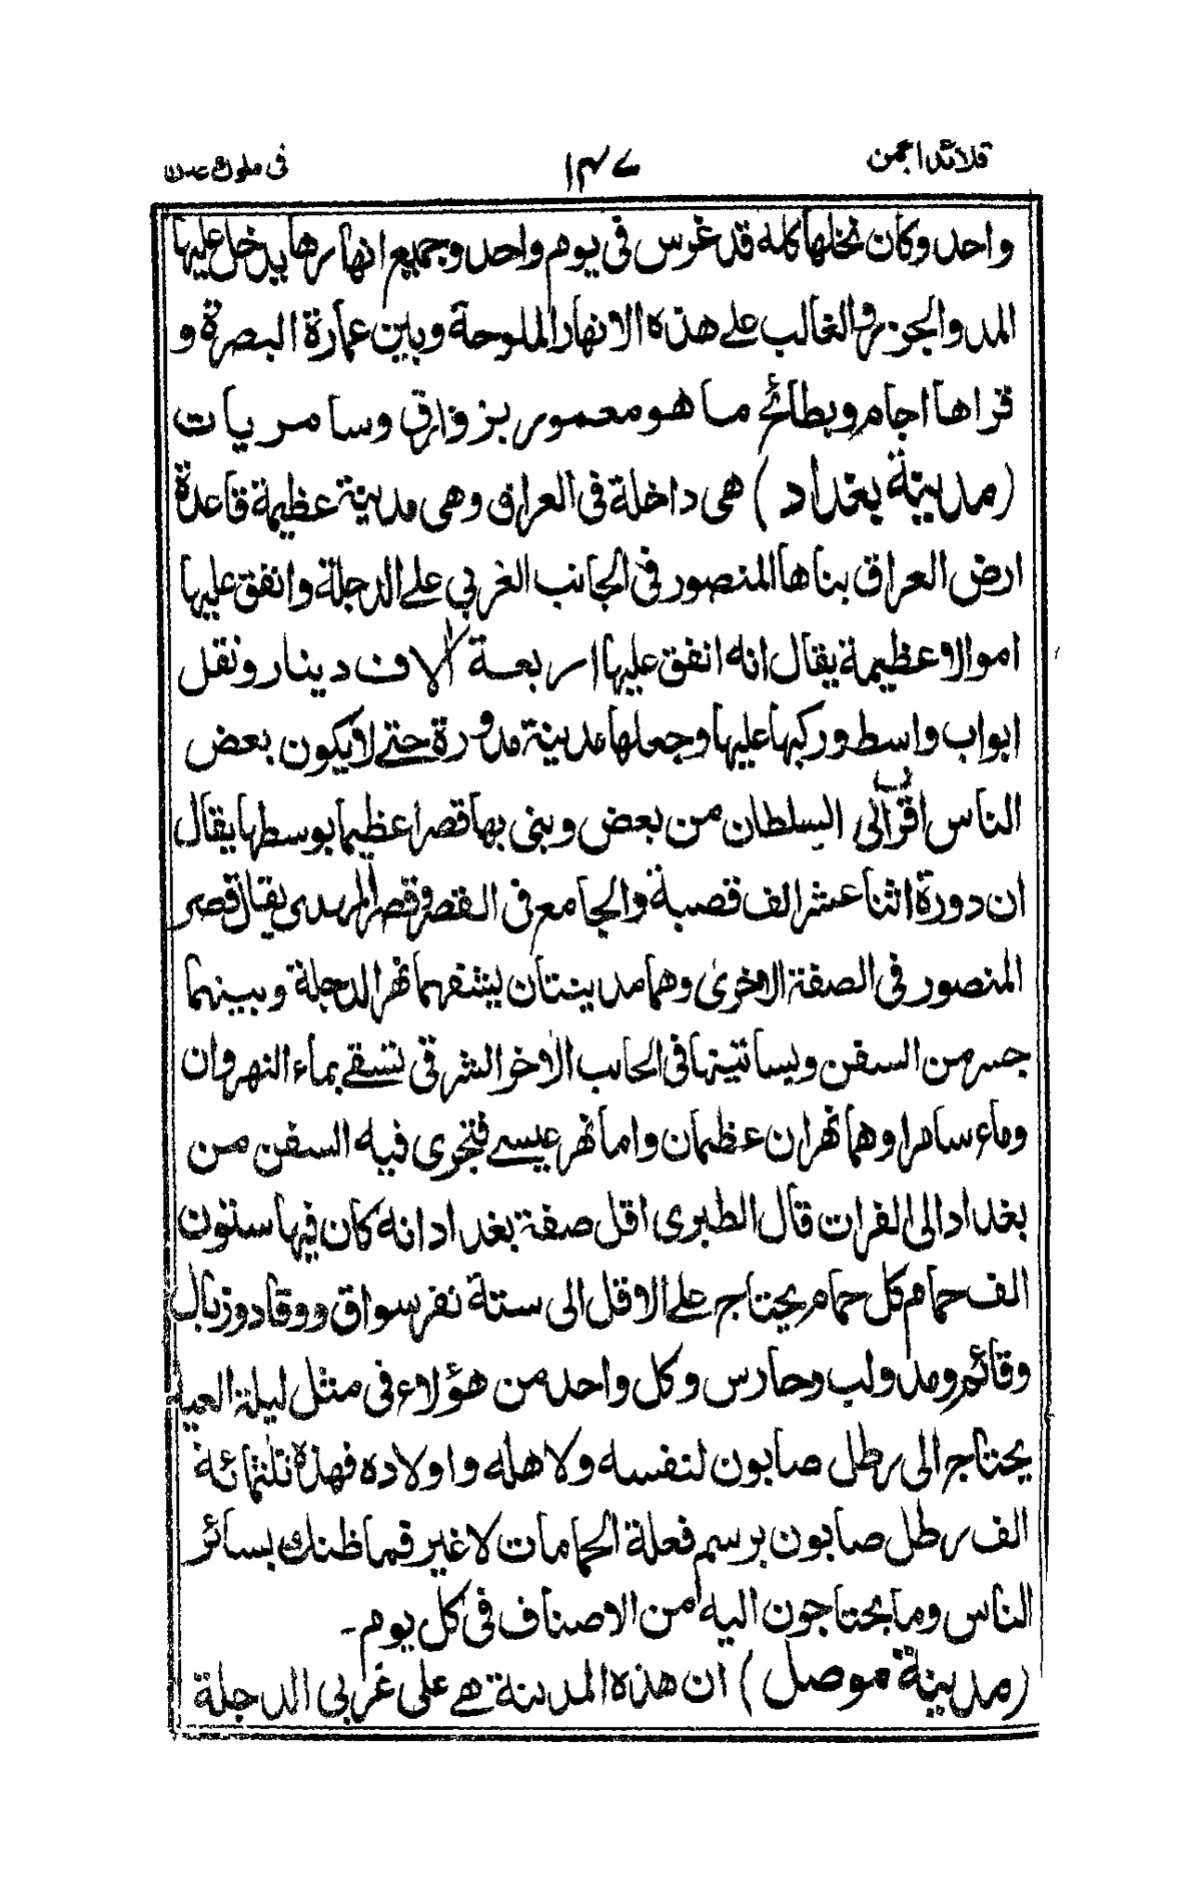 قلائد الجمن ١٤٧ فى ملوك عدن
واحد وكان نخلها كله قد غرس فى يوم واحد وجميع انهارها يدخل عليها
المد والجزر والغالب على هذه الانهار الملوحة وبين عمارة البصرة و
قراها اجام وبطائح ما هو معمور بزوارق وسامريات
(مدينة بغداد) هى داخلة فى العراق وهى مدينة عظيمة قاعدة
ارض العراق بناها المنصور فى الجانب الغربي على الدجلة وانفق عليها
اموالا عظيمة يقال انه انفق عليها اربعة آلاف دينار ونقل
ابواب واسط وركبها عليها وجعلها مدينة مدورة حتى لا يكون بعض
الناس اقرب الى السلطان من بعض وبنى بها قصرا عظيما بوسطها يقال
ان دورة اثنا عشر الف قصبة والجامع فى القصر وقصر المهدى يقابل قصر
المنصور فى الصفة الاخرى وهما مدينتان يشقهما نهر الدجلة وبينهما
جسر من السفن وبساتينها فى الجانب الاخر الشرقى تسقى بماء النهروان
وماء سامرا وهما نهران عظمان واما نهر عيسى فتجرى فيه السفن من
بغداد الى الفرات قال الطبرى اقل صفة بغداد انه كان فيها ستون
الف حمام كل حمام يحتاج على الاقل الى ستة نفر سواق ووقاد وزبال
وقائم ومدولب وحارس وكل واحد من هؤلاء فى مثل ليلة العيد
يحتاج الى رطل صابون لنفسه ولاهله واولاده فهذة ثلثمائة
الف رطل صابون برسم فعلة الحمامات لا غير فما ظنك بسائر
الناس وما يحتاجون اليه من الاصناف فى كل يوم -
(مدينة موصل) ان هذه المدينة هى على غربى الدجلة